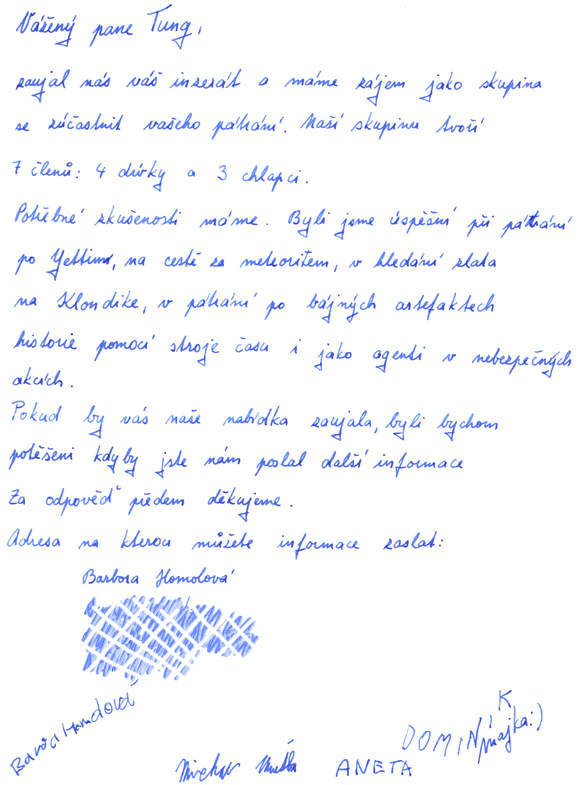 Vážený pane Tung,
zaujal nás váš inzerát a máme zájem jako skupina
se zúčastnit vašeho pátrání. Naší skupinu tvoří
7 členů: 4 dívky a 3 chlapci.
Potřebné zkušenosti máme. Byli jsme úspěšní při pátrání
po Yettim, na cestě za meteoritem, v hledání zlata
na Klondike, v pátrání po bájných artefaktech
historie pomocí stroje času i jako agenti v nebezpečných
akcích.
Pokud by vás naše nabídka zaujala, byli bychom
potěšeni kdyby jste nám poslal další informace
Za odpověď předem děkujeme.
Adresa na kterou můžete informace zaslat:
Barbora Homolová
DOMINIK
ANETA